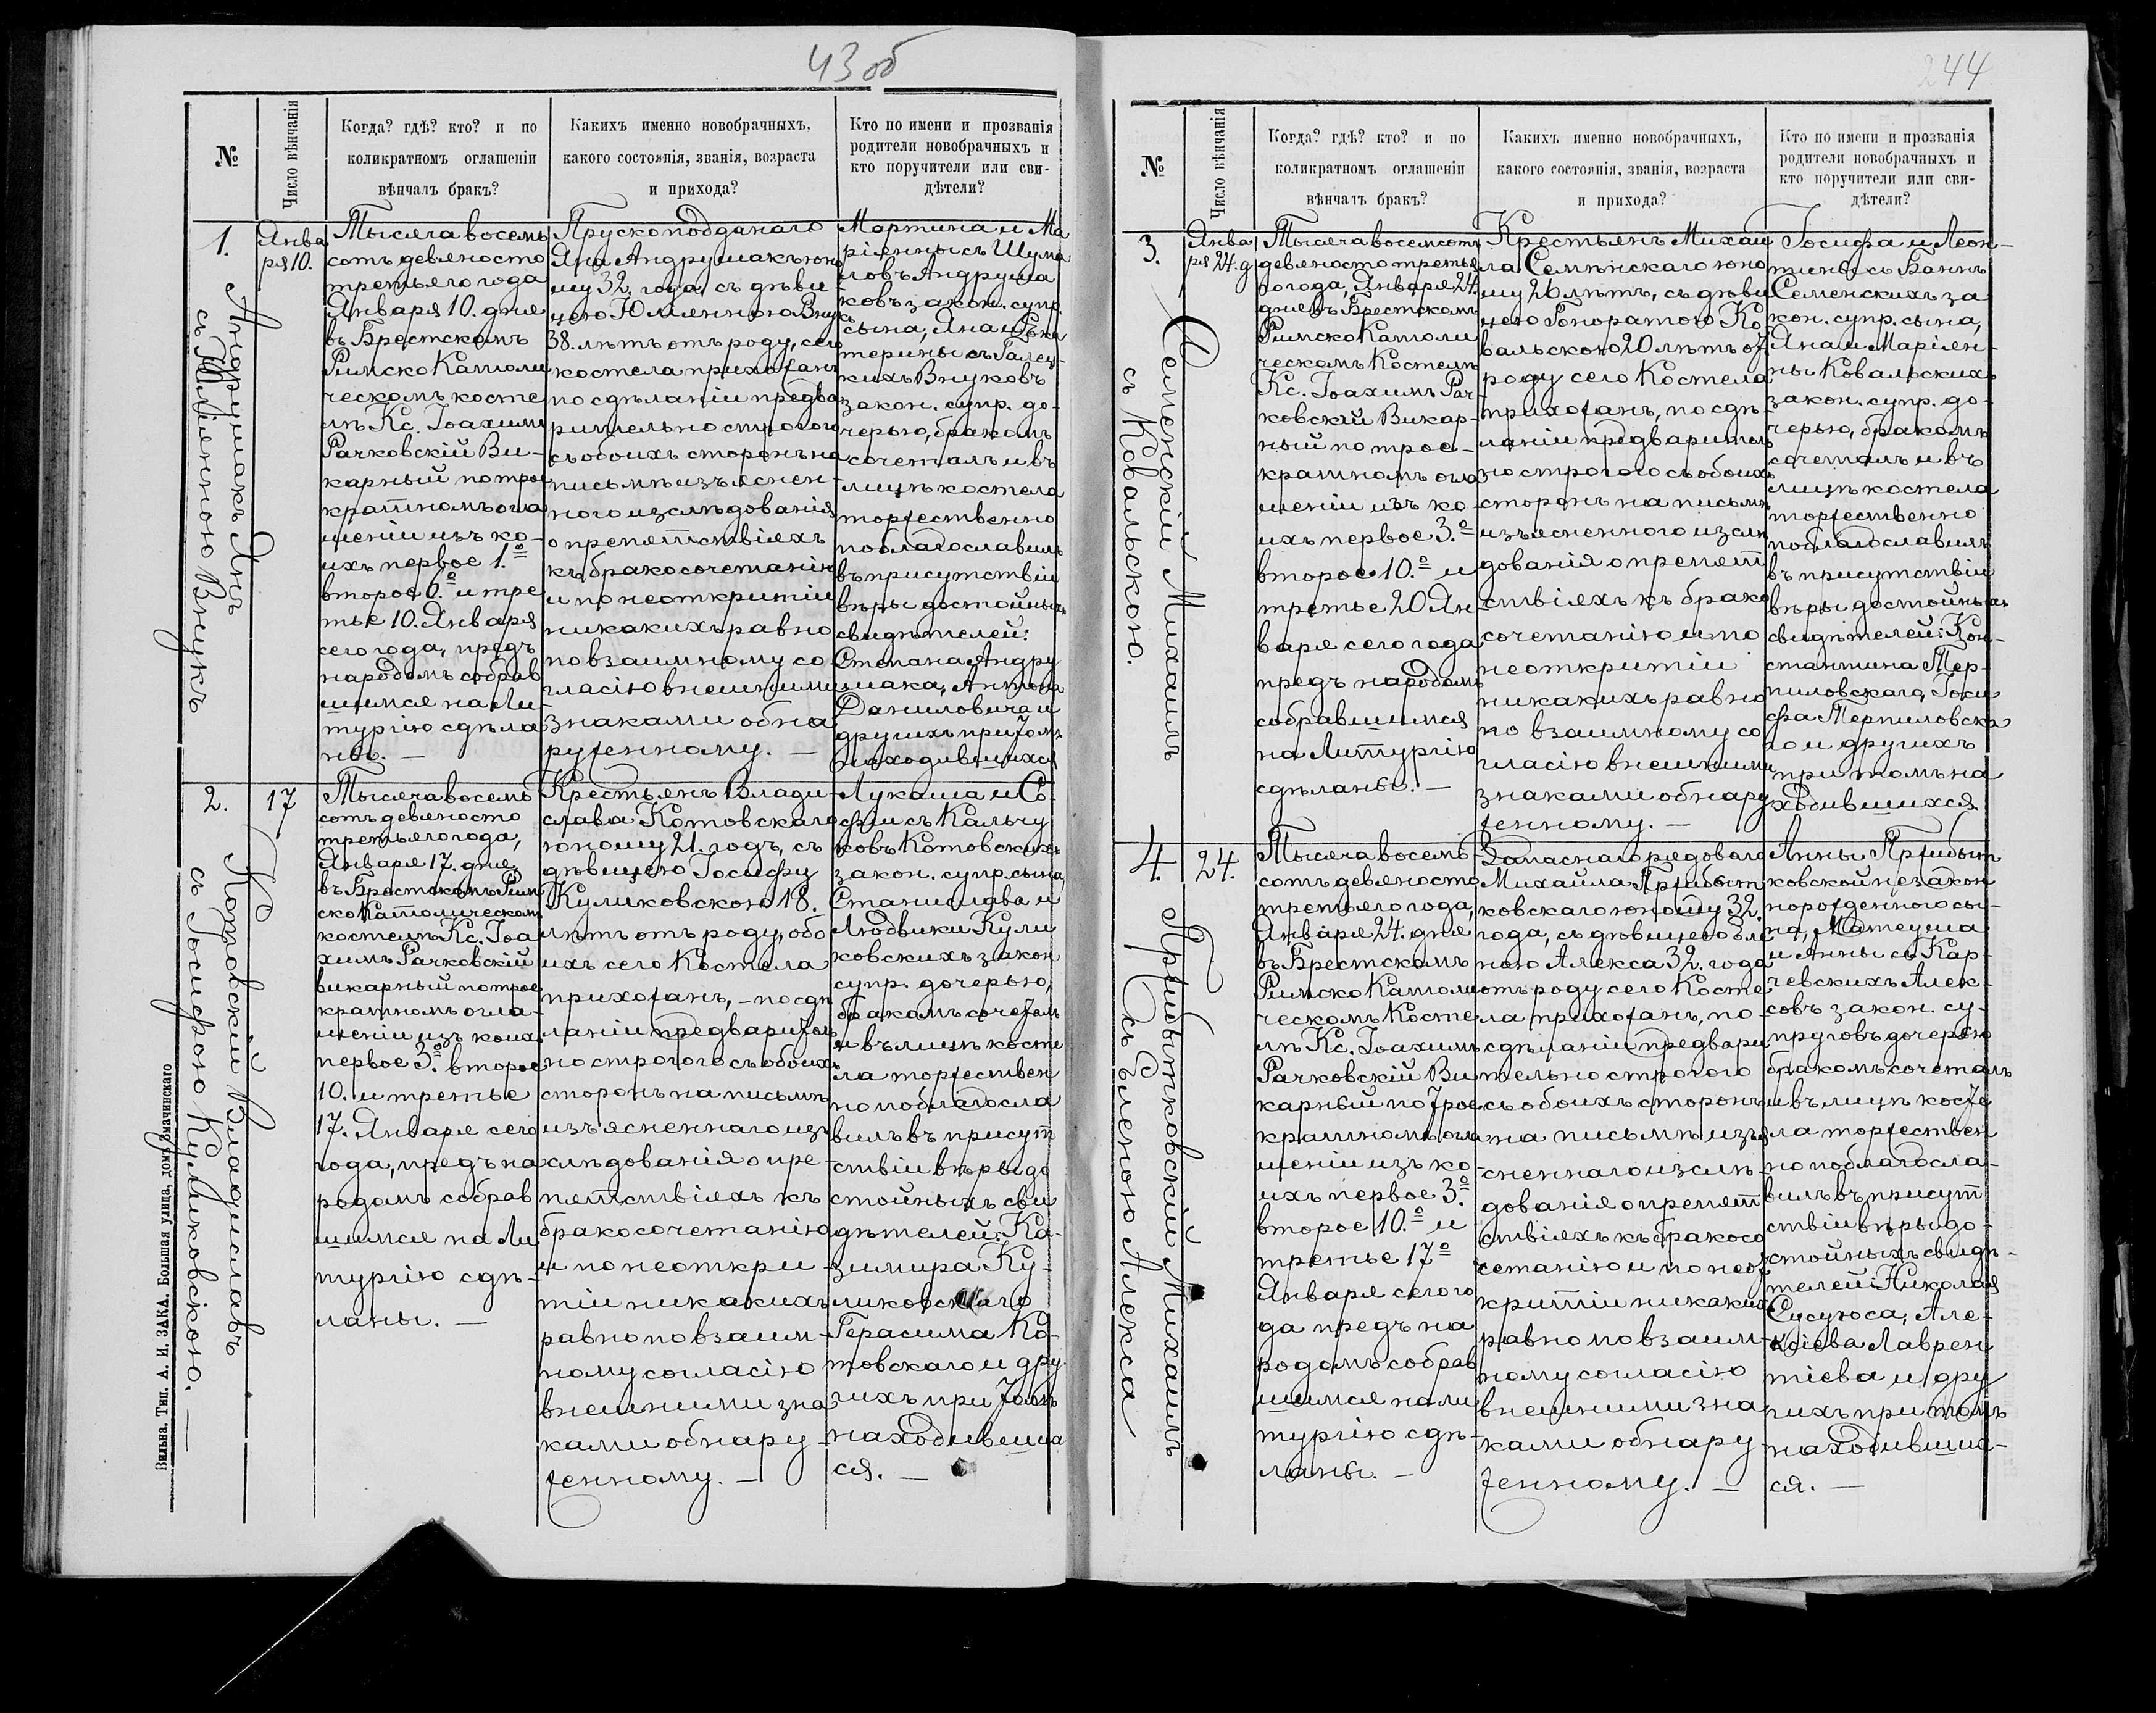 43 об
№
Число вѣнчанія
Когда? гдѣ? кто? и по
коликратномъ оглашеніи
вѣнчалъ бракъ?
Какихъ именно новобрачныхъ,
какого состоянія, званія, возраста
и прихода?
Кто по имени и прозванія
родители новобрачныхъ и
кто поручители или сви-
дѣтели?
1.
Андрушакъ Янъ
съ Юліянною Внукъ
Янва
ря 10.
Тысяча восемь
сотъ девяносто
третьяго года
Января 10. дня
въ Брестскомъ
Римско Католи
ческомъ косте
лѣ Кс. Іоахимъ
Рачковскій Ви-
карный по трое
кратномъ огла
шеніи изъ ко-
ихъ первое 1.º
второе 6.º и тре
тье 10. Января
сего года, предъ
народомъ собрав
шимся на Ли
тургію сдѣла
ны. —
Прускоподданаго
Яна Андрушакъ юно
шу 32. года, съ дѣви-
цею Юліянною Внукъ
38. лѣтъ отъ роду, сего
костела прихожанъ
по сдѣланіи предва
рительно строгого
съ обоихъ сторонъ на
письмѣ изъяснен-
ного изслѣдованія
о препятствіяхъ
къ бракосочетанію
и по неоткритіи
никакихъ равно
по взаимному со
гласію внешними
знаками обна
руженному. —
Мартина и Ма
ріянны съ Шума
ловъ Андруша
ковъ закон. супр.
сына, Яна и Ека
терины съ Галец-
кихъ Внуковъ
закон. супр. до-
черью, бракомъ
сочеталъ и въ
лицѣ костела
торжественно
поблагославилъ
въ присутствіи
вѣры достойныхъ
свидѣтелей:
Степана Андру
шака, Антона
Даниловича и
другихъ при томъ
находившихся
2.
Котовскій Владиславъ
съ Іосифою Куликовскою. —
17
Тысяча восемь
сотъ девяносто
третьяго года,
Января 17. дня
въ Брестскомъ Рим
ско Католическомъ
костелѣ Кс. Іоа
химъ Рачковскій
викарный по трое
кратномъ огла-
шеніи изъ коихъ
первое 3.º второе
10. и третье
17. Января сего
года, предъ на
родомъ собрав
шимся на Ли
тургію сдѣ-
ланы. —
Крестьянъ Влади-
слава Котовскаго
юношу 21. годъ, съ
дѣвицею Іосифу
Куликовскою 18.
лѣтъ отъ роду, обо
ихъ сего Костела
прихожанъ, - по сдѣ
ланіи предваритель
но строгого съ обоихъ
сторонъ на письмѣ
изъясненнаго из
слѣдованія о пре-
пятствіяхъ къ
бракосочетанію
и по неоткри-
тіи никакихъ
равно по взаим-
ному согласію
внешними зна
ками обнару-
женному. —
Лукаша и Со-
фіи съ Кальчу
ковъ Котовскихъ
закон. супр. сына,
Станислава и
Людвики Кули
ковскихъ закон
супр. дочерью,
бракомъ сочеталъ
и въ лицѣ косте
ла торжествен
но поблагосла
вилъ въ присут
ствіи вѣры до
стойныхъ сви
дѣтелей: Ка-
зимира Ку-
ликовскаго
Герасима Ко-
товскаго и дру
гихъ при томъ
находивших
ся. —
Вильна. Тип. А. И. ЗАКА. Большая улица, домъ Значинскаго
244
№
Число вѣнчанія
Когда? гдѣ? кто? и по
коликратномъ оглашеніи
вѣнчалъ бракъ?
Какихъ именно новобрачныхъ,
какого состоянія, званія, возраста
и прихода?
Кто по имени и прозванія
родители новобрачныхъ и
кто поручители или сви-
дѣтели?
3.
Семенскій Михаилъ
съ Ковальскою.
Янва
ря 24. д
Тысяча восемсотъ
девяносто третья
го года, Января 24.
дня въ Брестскомъ
Римско Католи
ческомъ Костелѣ
Кс. Іоахимъ Рач-
ковскій Викар-
ный по трое-
кратномъ огла
шеніи изъ ко-
ихъ первое 3.º
второе 10.º и
третье 20 Ян-
варя сего года
предъ народомъ
собравшимся
на Литургію
сдѣланы. —
Крестьянъ Михаи
ла Семенскаго юно
шу 26 лѣтъ, съ дѣви
цею Гоноратою Ко
вальскою 20 лѣтъ от
роду сего Костела
прихожанъ, по сдѣ-
ланіи предваритель
но строгого съ обоихъ
сторонъ на письмѣ
изъясненного изслѣ
дованія о препят
ствіяхъ къ брако
сочетанію и по
неоткритіи
никакихъ равно
по взаимному со
гласію внешними
знаками обнару
женному. —
Іосифа и Леон-
тины съ Баннъ
Семенскихъ за
кон. супр. сына,
Яна и Маріян-
ны Ковальскихъ
закон. супр. до-
черью, бракомъ
сочеталъ и въ
лицѣ костела
торжественно
поблагославилъ
въ присутствіи
вѣры достойныхъ
свидѣтелей: Кон-
стантина Тер-
пиловскаго, Іоси
фа Терпиловска
го и другихъ
при томъ на
ходившихся.
4.
Пржибытковскій Михаилъ
съ Еленою Алекса
24.
Тысяча восемь-
сотъ девяносто
третьего года,
Января 24. дня
въ Брестскомъ
Римско Католи
ческомъ Косте
лѣ Кс. Іоахимъ
Рачковскій Ви
карный по трое
кратномъ огла
шеніи изъ ко
ихъ первое 3.º
второе 10.º и
третье 17º
Января сего го
да предъ на
родомъ собрав
шимся на ли
тургію сдѣ-
ланы. —
Запаснаго рядоваго
Михайла Пржибыт
ковскаго юношу 32.
года, съ дѣвицею Еле
ною Алекса 32. года
отъ роду сего Косте
ла прихожанъ, по-
сдѣланіи предвари
тельно строгого
съ обоихъ сторонъ
на письмѣ изъя
сненнаго изслѣ-
дованія о препят
ствіяхъ къ бракосо
четанію и по неот
критіи никакихъ
равно по взаим-
ному согласію
внешними зна
ками обнару
женному. —
Анны Пржибыт
ковской незакон
норожденного сы-
на, Матеуша
и Анны съ Кар-
чевскихъ Алек-
совъ закон. су-
пруговъ дочерью
бракомъ сочеталъ
и въ лицѣ косте
ла торжествен
но поблагосла-
вилъ въ присут
ствіи вѣры до-
стойныхъ свидѣ-
телей: Николая
Сусуюса, Але-
ксіева Лаврен
тіева и дру
гихъ при томъ
находивших-
ся. —